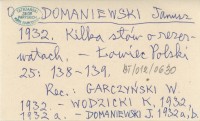 DOMANIEWSKI Janusz
1932. Kilka słów o rezer-
watach. – Łowiec Polski
25: 138-139. BT/012/0630
Rec.: GARCZYŃSKI W.
1932. – WODZICKI K. 1932,
1932 a. – DOMANIEWSKI J. 1932a, b.